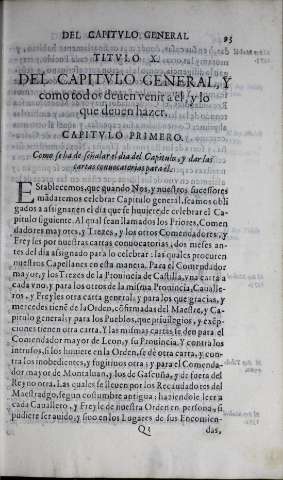 DEL CAPITVLO GENERAL 93
TITVLO X.
DEL CAPITVLO GENERAL, Y
como todos deuen venir a el, y lo
que deuen hazer.
CAPITVLO PRIMERO.
Como se ha de señalar el dia del Capitulo, y dar las
cartas conuocatorias para el.
EStablecemos, que quando Nos, y nuestros sucessores
mãdaremos celebrar Capitulo general, seamos obli
gados a assignar en el dia que se huuiere de celebrar el Ca-
pitulo siguiente. Al qual sean llamados los Priores, Comen
dadores mayores, y Trezes, y los otros Comendadores, y
Freyles por nuestras cartas conuocatorias, dos meses an-
tes del dia assignado para lo celebrar: las quales procuren
nuestros Capellanes en esta manera. Para el Comendador
mayor, y los Trezes de la Prouincia de Castilla, vna carta a
cada vno, y para los otros de la misma Prouincia, Cavalle-
ros, y Freyles otra carta general; y para los que gracias, y
mercedes tienẽ de la Orden, cõfirmadas del Maestre, y Ca-
pitulo general; y para los Pueblos, que priuilegios, y exẽp-
ciones tienen otra carta. Y las mismas cartas se den para el
Comendador mayor de Leon, y su Prouincia. Y contra los
intrusos, si los huuiere en la Orden, se dè otra carta, y con-
tra los inobedientes, y fugitiuos otra; y para el Comenda-
dor mayor de Montaluan, y los de Gascuña, y de fuera del
Reyno otra. Las quales se lleuen por los Recaudadores del
Maestradgo, segun costumbre antigua: haziendole leer a
cada Cauallero, y Freyle de nuestra Orden en persona, si
pudiere ser auido, y sino en los Lugares de sus Encomien-
Q3 das,